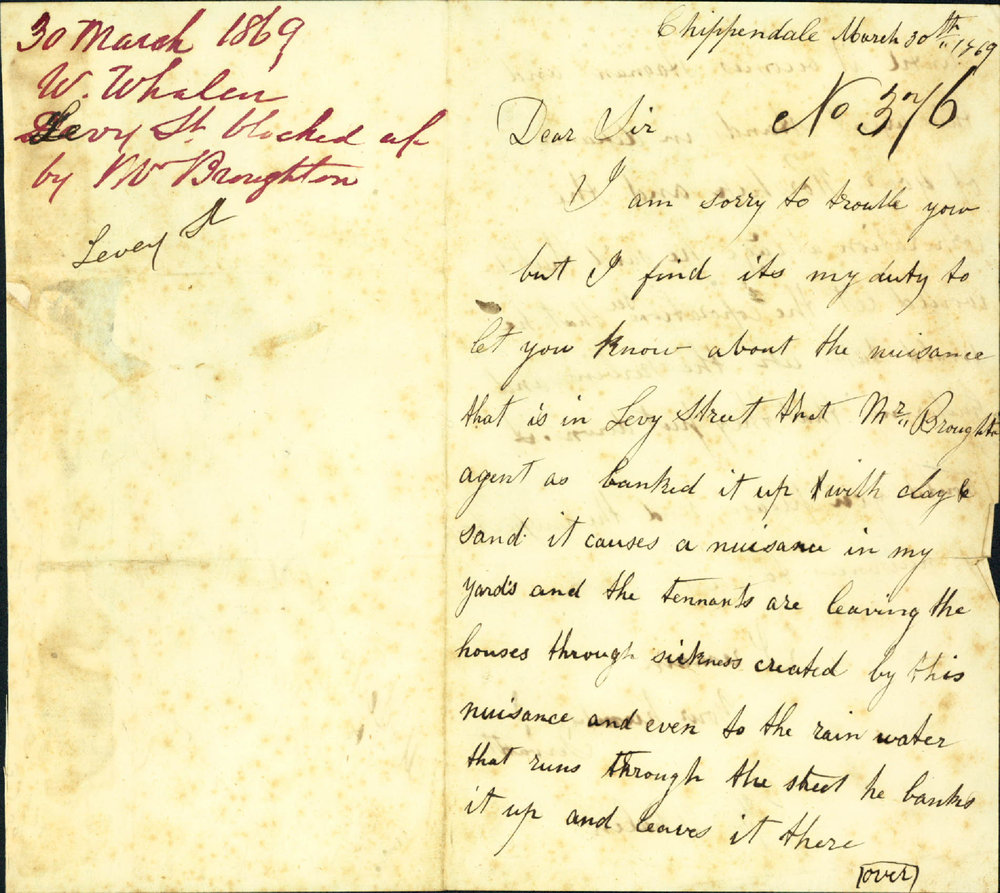 30 March 1869
W. Whalen
Levy St. blocked up
by Mr Broughton
Levey St
Chippendale March 30th 1869
No 376
Dear Sir
I am sorry to trouble you
but I find its my duty to
let you know about the nuisance
that is in Levy Street that Mr. Broughton
agent as banked it up with clay &
sand it causes a nuisance in my
yards and the tennants are leaving the
houses through sickness created by this
nuisance and even to the rain water
that runs through the street he banks
it up and leaves it there
over